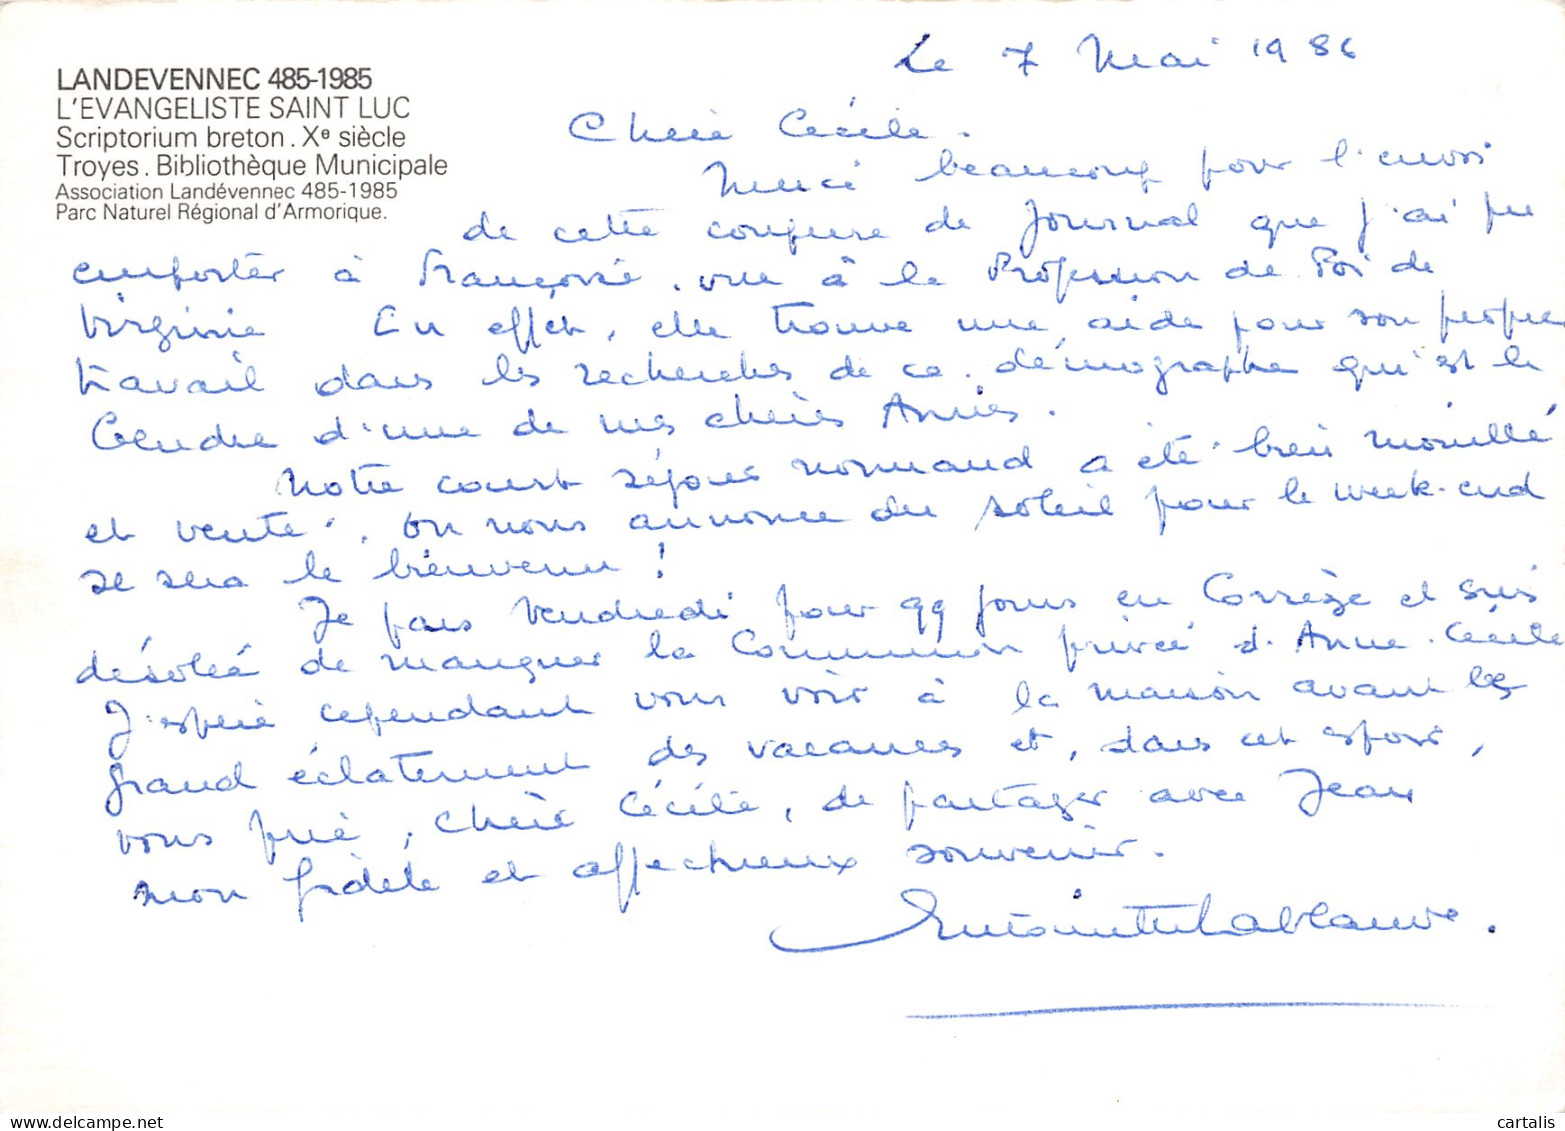 LANDEVENNEC 485-1985
L'EVANGELISTE SAINT LUC
Scriptorium breton. Xe siècle
Troyes. Bibliothèque Municipale
Association Landévennec 485-1985
Parc Naturel Régional d'Armorique.
Le 7 Mai 1986
Chère Cécile.
Merci beaucoup pour l'envoi
de cette coupure de Journal que j'ai pu
emporter à Françoise, vue à la Profession de Foi de
Virginie En effet, elle trouve une aide pour son propre
travail dans les recherches de ce démographe qui est le
Gendre d'une de mes chères Amies.
Notre court séjour normand a été bien mouillé
et venté, on nous annonce du soleil pour le week-end
se sera le bienvenu!
Je pars Vendredi pour qq jours en Corrèze et suis
désolée de manquer la Communion privée d'Anne-Cécile
J'espère cependant vous voir à la maison avant le
grand éclatement des vacances et, dans cet espoir,
vous prie, Chère Cécile, de partager avec Jean
mon fidèle et affectueux souvenir.
cartalis